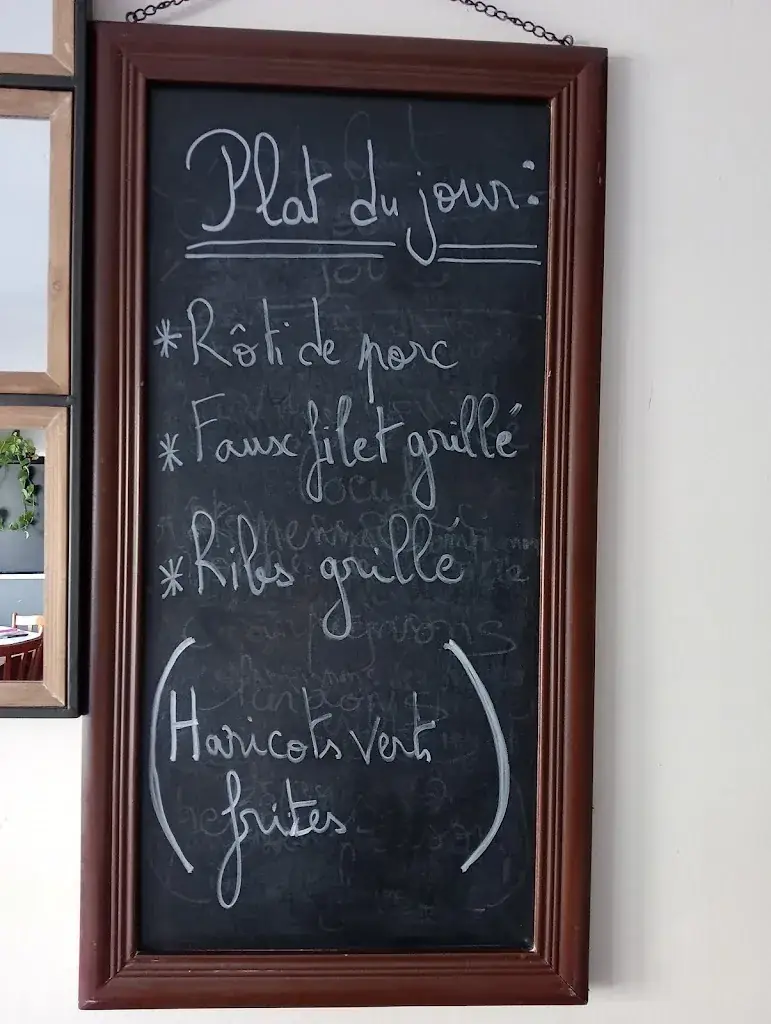 Plat du jour:
* Rôti de porc
* Faux filet grillé
* Ribs grillé
(Haricots verts
frites)